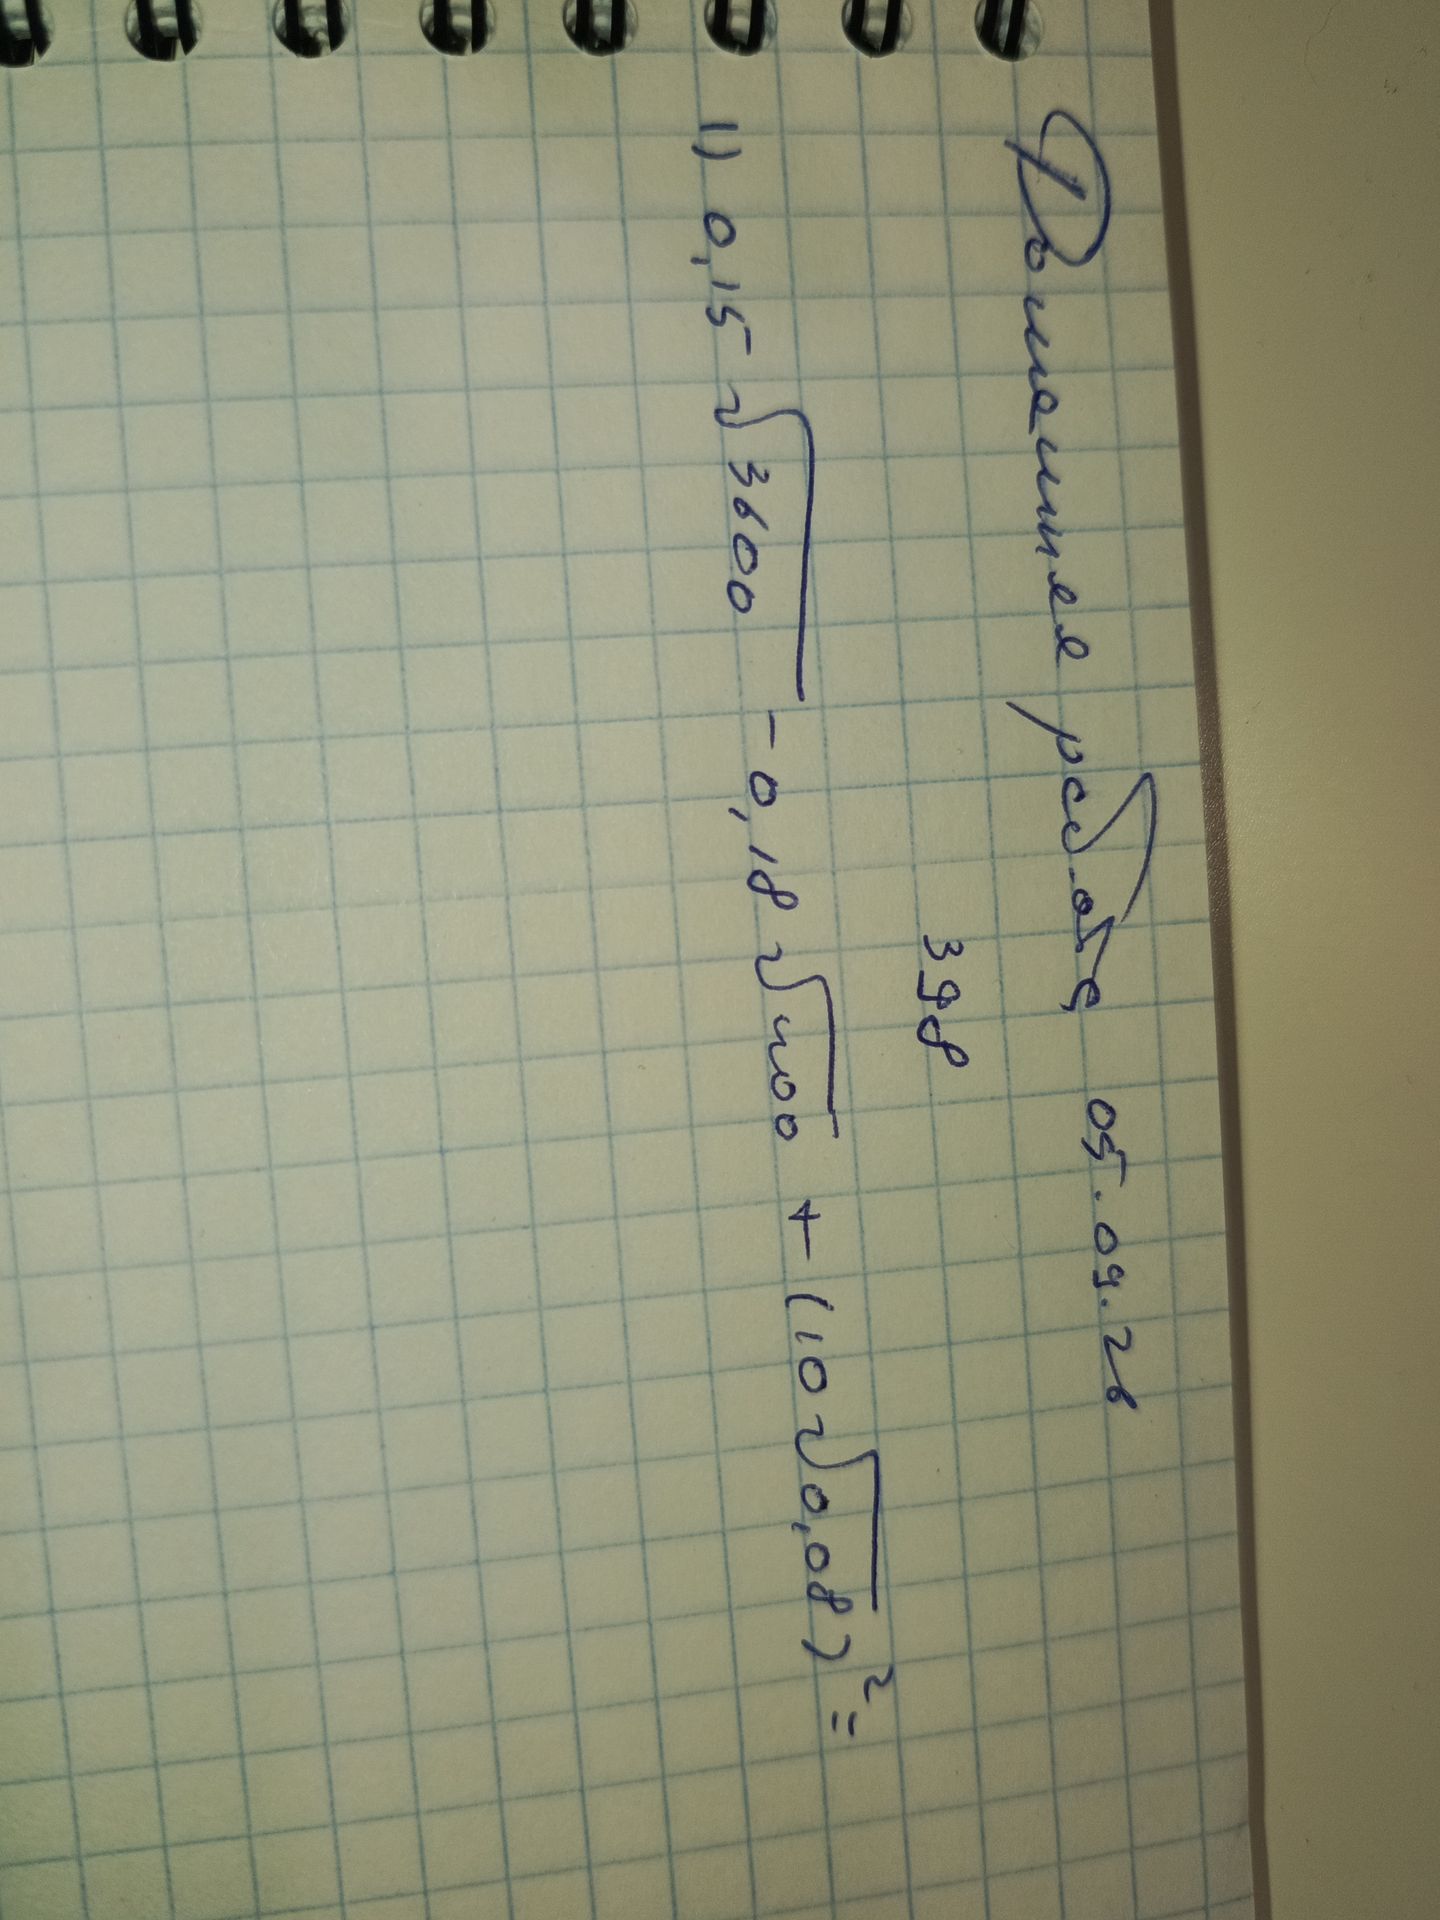 Домашняя работа 05.09.26
398
1) 0,15 √3600 - 0,18 √400 + (10 √0,08)² =